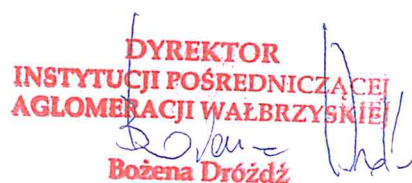 DYREKTOR
INSTYTUCJI POŚREDNICZĄCEJ
AGLOMERACJI WAŁBRZYSKIEJ
Bożena Dróżdż